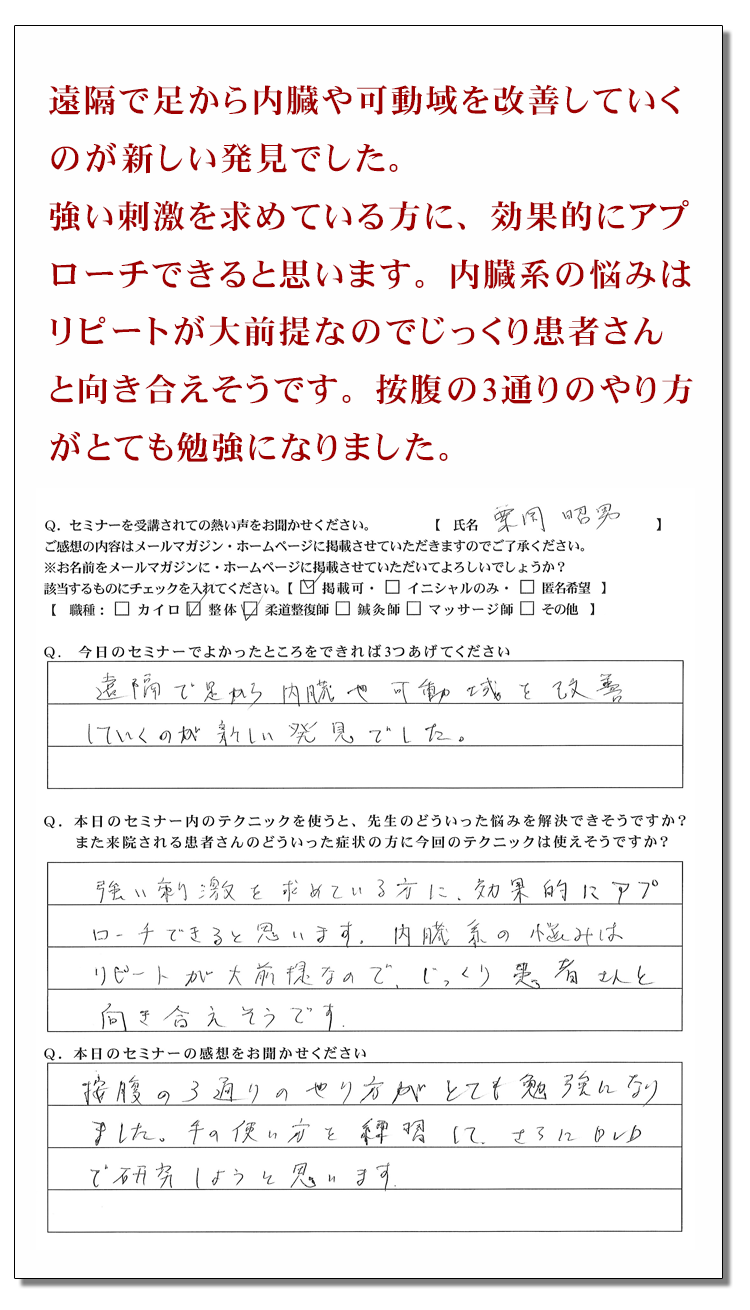 遠隔で足から内臓や可動域を改善していく
のが新しい発見でした。
強い刺激を求めている方に、効果的にアプ
ローチできると思います。内臓系の悩みは
リピートが大前提なのでじっくり患者さん
と向き合えそうです。按腹の3通りのやり方
がとても勉強になりました。
Q．セミナーを受講されての熱い声をお聞かせください。 【 氏名 栗岡 昭男 】
ご感想の内容はメールマガジン・ホームページに掲載させていただきますのでご了承ください。
※お名前をメールマガジンに・ホームページに掲載させていただいてよろしいでしょうか？
該当するものにチェックを入れてください。【 ☑ 掲載可・ □ イニシャルのみ・ □ 匿名希望 】
【 職種： □ カイロ ☑ 整体 ☑ 柔道整復師 □ 鍼灸師 □ マッサージ師 □ その他 】
Q． 今日のセミナーでよかったところをできれば3つあげてください
遠隔で足から内臓や可動域を改善
していくのが新しい発見でした。
Q．本日のセミナー内のテクニックを使うと、先生のどういった悩みを解決できそうですか？
また来院される患者さんのどういった症状の方に今回のテクニックは使えそうですか？
強い刺激を求めている方に、効果的にアプ
ローチできると思います。内臓系の悩みは
リピートが大前提なので、じっくり患者さんと
向き合えそうです。
Q．本日のセミナーの感想をお聞かせください
按腹の3通りのやり方がとても勉強になり
ました。手の使い方を練習して、さらにDVD
で研究しようと思います。